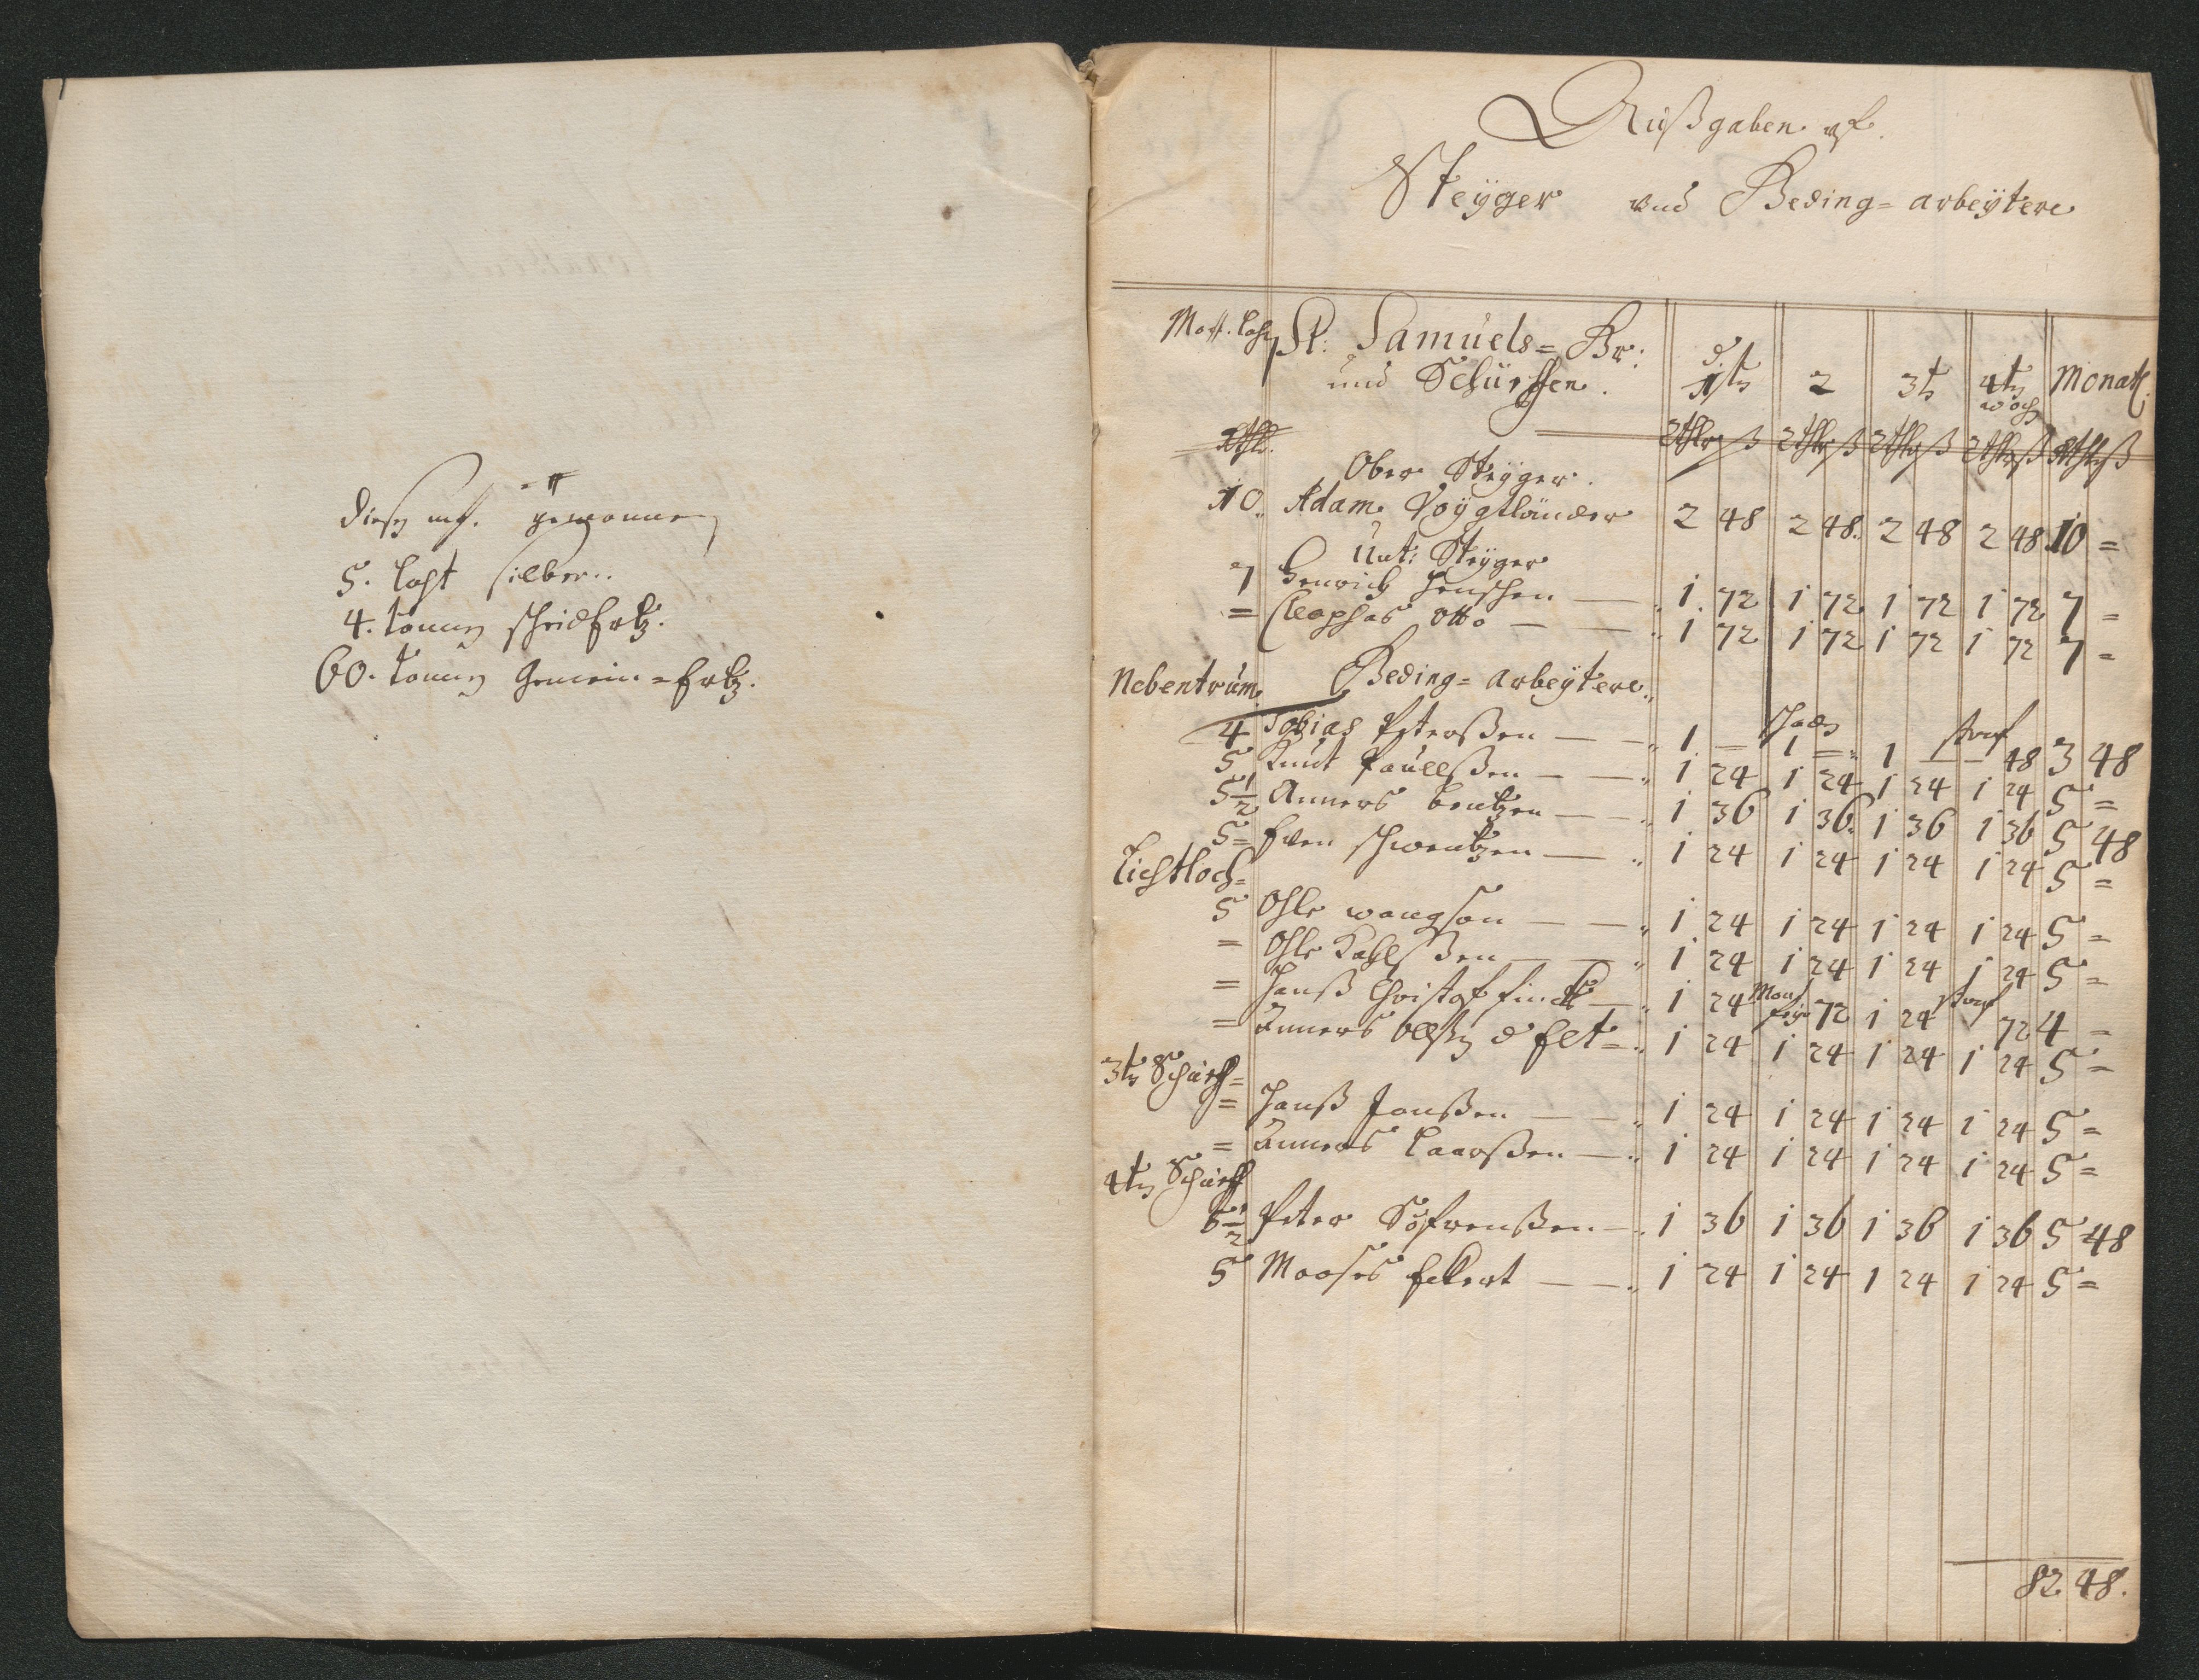 diesen gewonnen
5. loht silber..
4. tonnen scheidErtz.
60. tonnen Gemein=Ertz.
Außgaben uf.
Steÿger und Beding=arbeÿtere
St: Samuels=Br:
und Schürffen.
d. 1ste 2 3te 4te woch Monatl.
Rthlr ß Rthlr ß Rthlr ß Rthlr ß Rthlr ß
Rthlr.
Ober Steÿger.
10. Adam Voÿgtländer 2 48 2 48. 2 48 2 48 10 =
Unt: Steÿger
7 Henrich Henschen — 1. 72 1 72 1 72 1 72 7 =
= Cleophas Otto — — 1 72 1 72 1 72 1 72 7 =
Nebentrum Beding=arbeÿtere..
4 Tobias Peterßen — — 1. = 1 = 1 — straf 48 3 48
5 Knut Paullßen — — 1 24 1 24 1 24 1 24 5 =
5 1/2 Anners bentzen — — 1 36 1 36. 1 36 1 36 5 48
5 = Even schwentzen — 1 24 1 24 1 24 1 24 5 =
Lichtloch=
5 Ohle wangson — — 1 24 1 24 1 24 1 24 5 =
= Ohle Kahlßen — — 1 24 1 24 1 24 1 24 5 =
= Hanß Christof finck — 1 24 72 1 24 straf 72 4 =
= Anners Olßen d Elt = 1 24 1 24 1 24 1 24 5 =
3te Schurf=
= Hanß Janßen — — 1 24 1 24 1 24 1 24 5 =
= Anners Laarßen — 1 24 1 24 1 24 1 24 5 =
4te Schurff
5 1/2 Peter Söfrenßen — 1 36 1 36 1 36 1 36 5 48
5 Mooses Eckert — — 1 24 1 24 1 24 1 24 5 =
82 48.